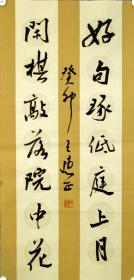 好句琢低庭上月
癸卯 王
閑棋敲落院中花